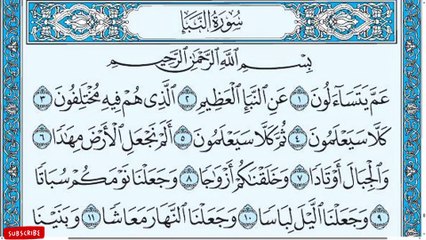 سُورَةُ النَّبَإِ
بِسْمِ اللَّهِ الرَّحْمَٰنِ الرَّحِيمِ
عَمَّ يَتَسَاءَلُونَ ١ عَنِ النَّبَإِ الْعَظِيمِ ٢ الَّذِي هُمْ فِيهِ مُخْتَلِفُونَ ٣
كَلَّا سَيَعْلَمُونَ ٤ ثُمَّ كَلَّا سَيَعْلَمُونَ ٥ أَلَمْ نَجْعَلِ الْأَرْضَ مِهَٰدًا ٦
وَالْجِبَالَ أَوْتَادًا ٧ وَخَلَقْنَٰكُمْ أَزْوَٰجًا ٨ وَجَعَلْنَا نَوْمَكُمْ سُبَاتًا
٩ وَجَعَلْنَا الَّيْلَ لِبَاسًا ١٠ وَجَعَلْنَا النَّهَارَ مَعَاشًا ١١ وَبَنَيْنَا
SUBSCRIBE